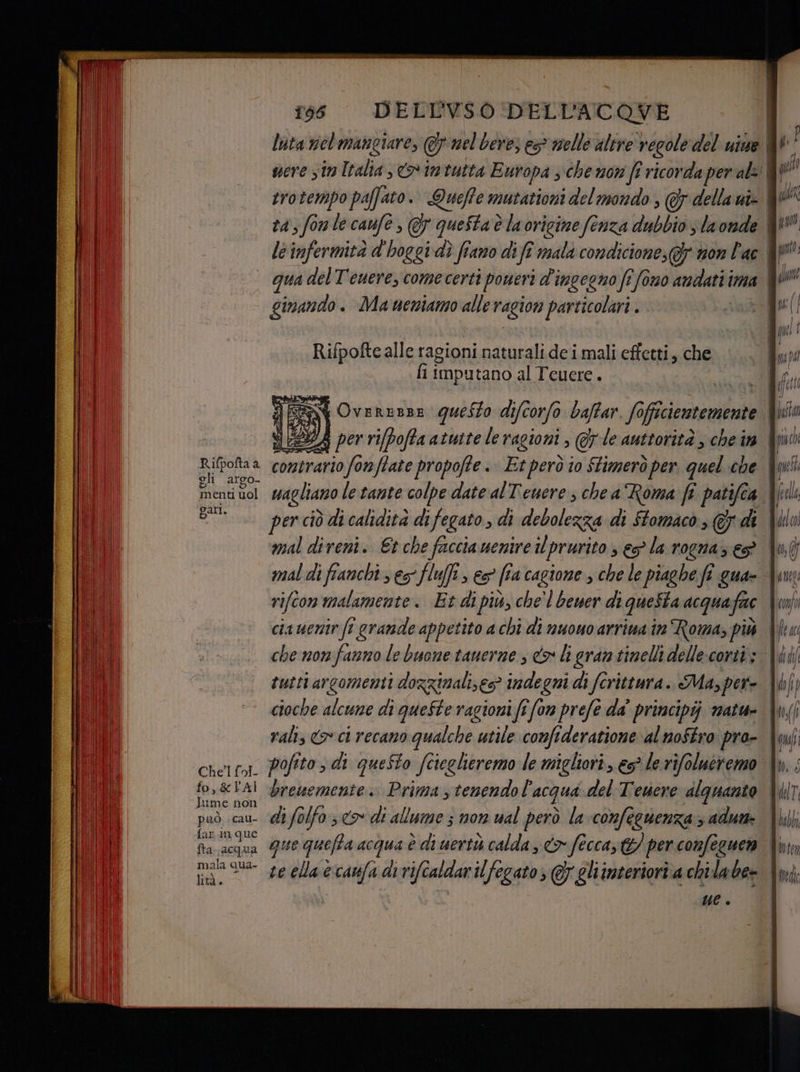 196 DELL'VSO DELL'ACQVE
luta nel mangiare, & nel bere, et nelle altre regole del uiue
uere, in Italia, & in tutta Europa, che non si ricorda per al-
tro tempo passato. Queste mutationi del mondo, & della ui-
ta, son le cause, & questa è la origine senza dubbio, la onde
le infermità d'hoggi dì siano di sì mala condicione, & non l'ac
qua del Teuere, come certi poueri d'ingegno si sono andati ima
ginando. Ma ueniamo alle ragion particolari.
Risposte alle ragioni naturali dei mali effetti, che
si imputano al Teuere.
OVEREBBE questo discorso bastar sofficientemente
per risposta a tutte le ragioni, & le auttorità, che in
Risposta a
gli argo-
menti uol
gari.
contrario son state proposte. Et però io stimerò per quel che
uagliano le tante colpe date al Teuere, che a Roma si patisca
per ciò di calidità di fegato, di debolezza di stomaco, & di
mal di reni. Et che faccia uenire il prurito, et la rogna, et
mal di fianchi, et flussi, et sia cagione, che le piaghe si gua-
riscon malamente. Et di più, che'l beuer di questa acqua fac
cia uenir sì grande appetito a chi di nuouo arriua in Roma, più
che non fanno le buone tauerne, & li gran tinelli delle corti;
tutti argomenti dozzinali, et indegni di scrittura. Ma, per-
cioche alcune di queste ragioni si son prese da' principij natu-
rali, & ci recano qualche utile consideratione al nostro pro-
posito, di questo scieglieremo le migliori, et le risolueremo
Che'l sol-
fo, & l'Al
lume non
può cau-
sar in que
sta acqua
mala qua-
lità.
breuemente. Prima, tenendo l'acqua del Teuere alquanto
di solfo, & di allume; non ual però la conseguenza, adun-
que questa acqua è di uertù calda, & secca, & per conseguen
te ella è causa di riscaldar il fegato, & gli interiori a chi la be-
ue.